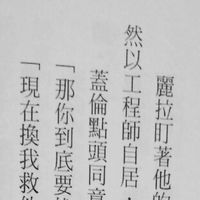 麗拉盯著他的
然以工程師自居，
蓋倫點頭同意
「那你到底要
「現在換我救